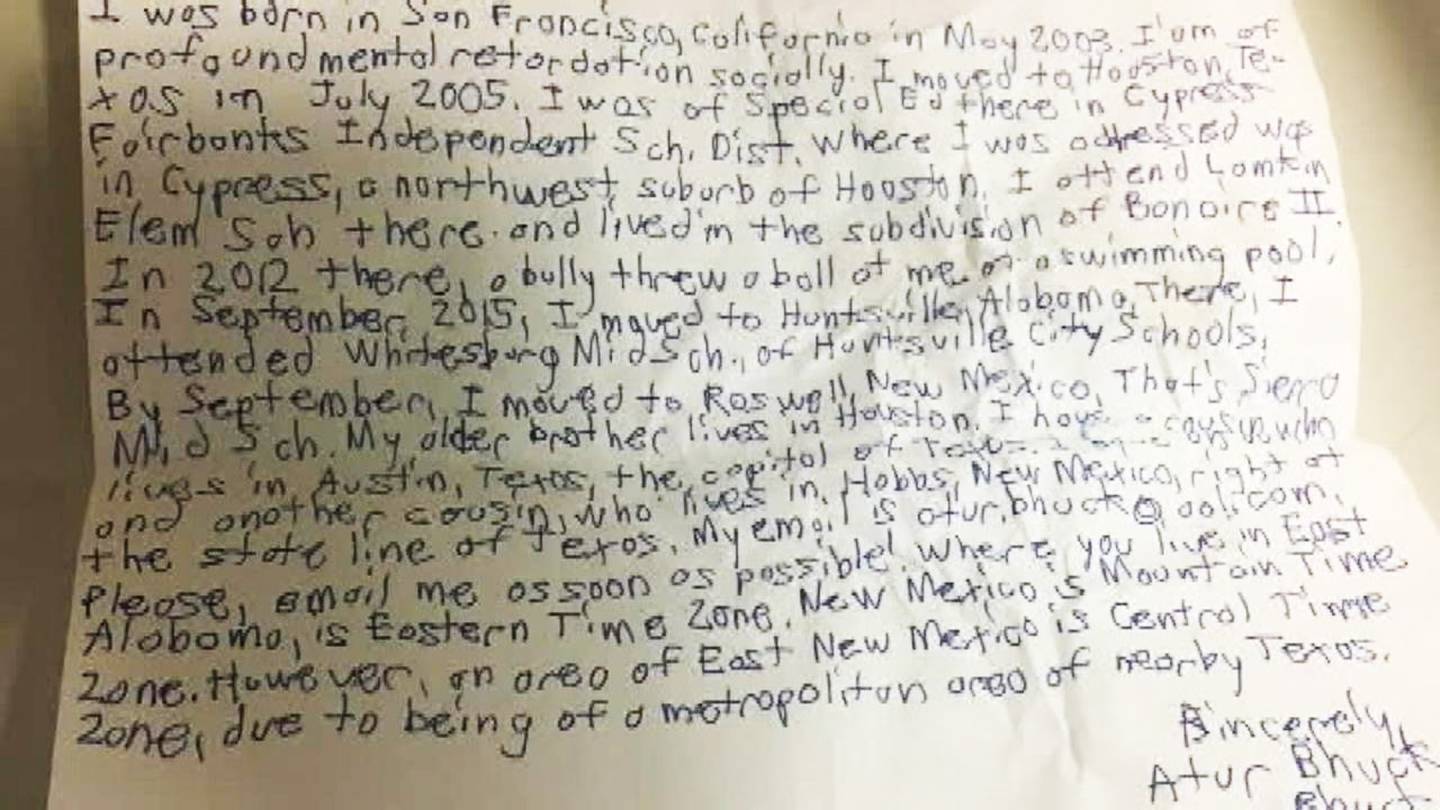 I was born in San Francisco, California in May 2003. I'am of
profound mental retardation socially. I moved to Houston, Te-
xas in July 2005. I was of Special Ed there in Cypress
Fairbanks Independent Sch. Dist. Where I was adressed was
in Cypress, a northwest suburb of Houston. I attend Lamkin
Elem Sch there. and lived in the subdivision of Bonaire II.
In 2012 there, a bully threw a ball at me at a swimming pool.
In September, 2015, I moved to Huntsville, Alabama, There, I
attended Whitesburg Mid Sch., of Huntsville City Schools,
By September, I moved to Roswell, New Mexico, That's Sierra
Mid Sch. My older brother lives in Houston. I have a cousin, who
lives in Austin, Texas, the capitol of Texas
and another cousin, who lives in, Hobbs, New Mexico, right at
the state line of Texas. My email is atur.bhuck@aol.com.
Please, email me as soon as possible! Where you live in East
Alabama, is Eastern Time Zone. New Mexico is Mountain Time
Zone. However, an area of East New Mexico is Central Time
Zone, due to being of a metropolitan area of nearby Texas.
Sincerely,
Atur Bhuck